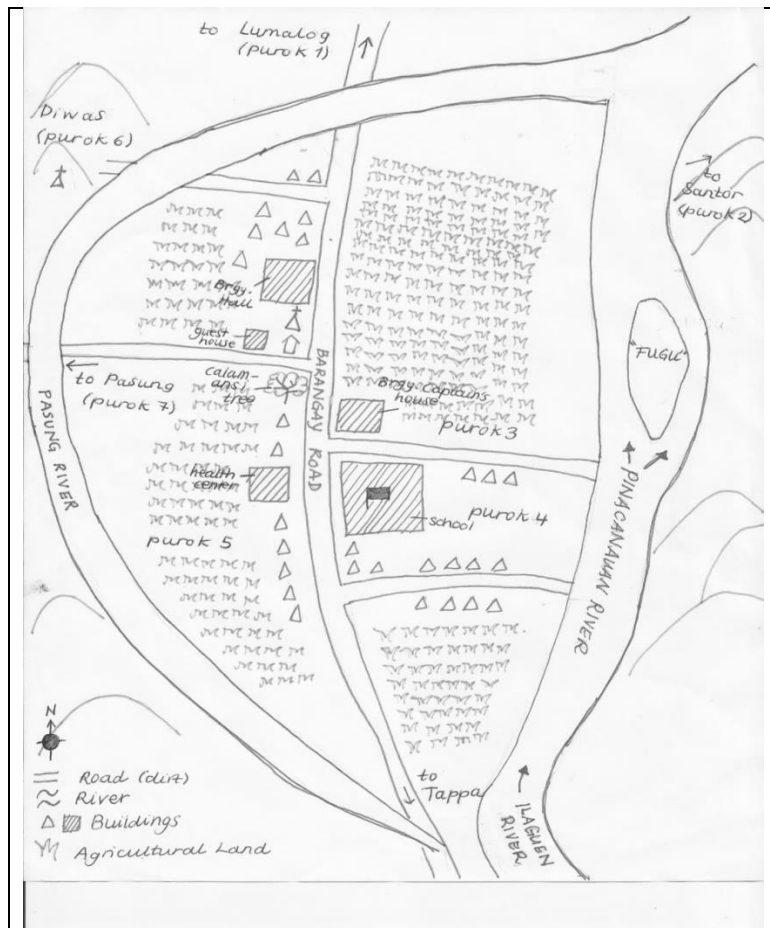 to Lumalog
(purok 1)
Diwas
(purok 6)
to
Santor
(purok 2)
Brgy.
Hall
guest
house
"FUGU"
to Pasung
(purok 7)
Calam-
ansi
tree
BARANGAY ROAD
Brgy. Captains
house
purok 3
PASUNG RIVER
health
center
school
purok 4
purok 5
PINACANAUAN RIVER
to
Tappa
ILAGUEN
RIVER
N
Road (dirt)
River
Buildings
Agricultural Land